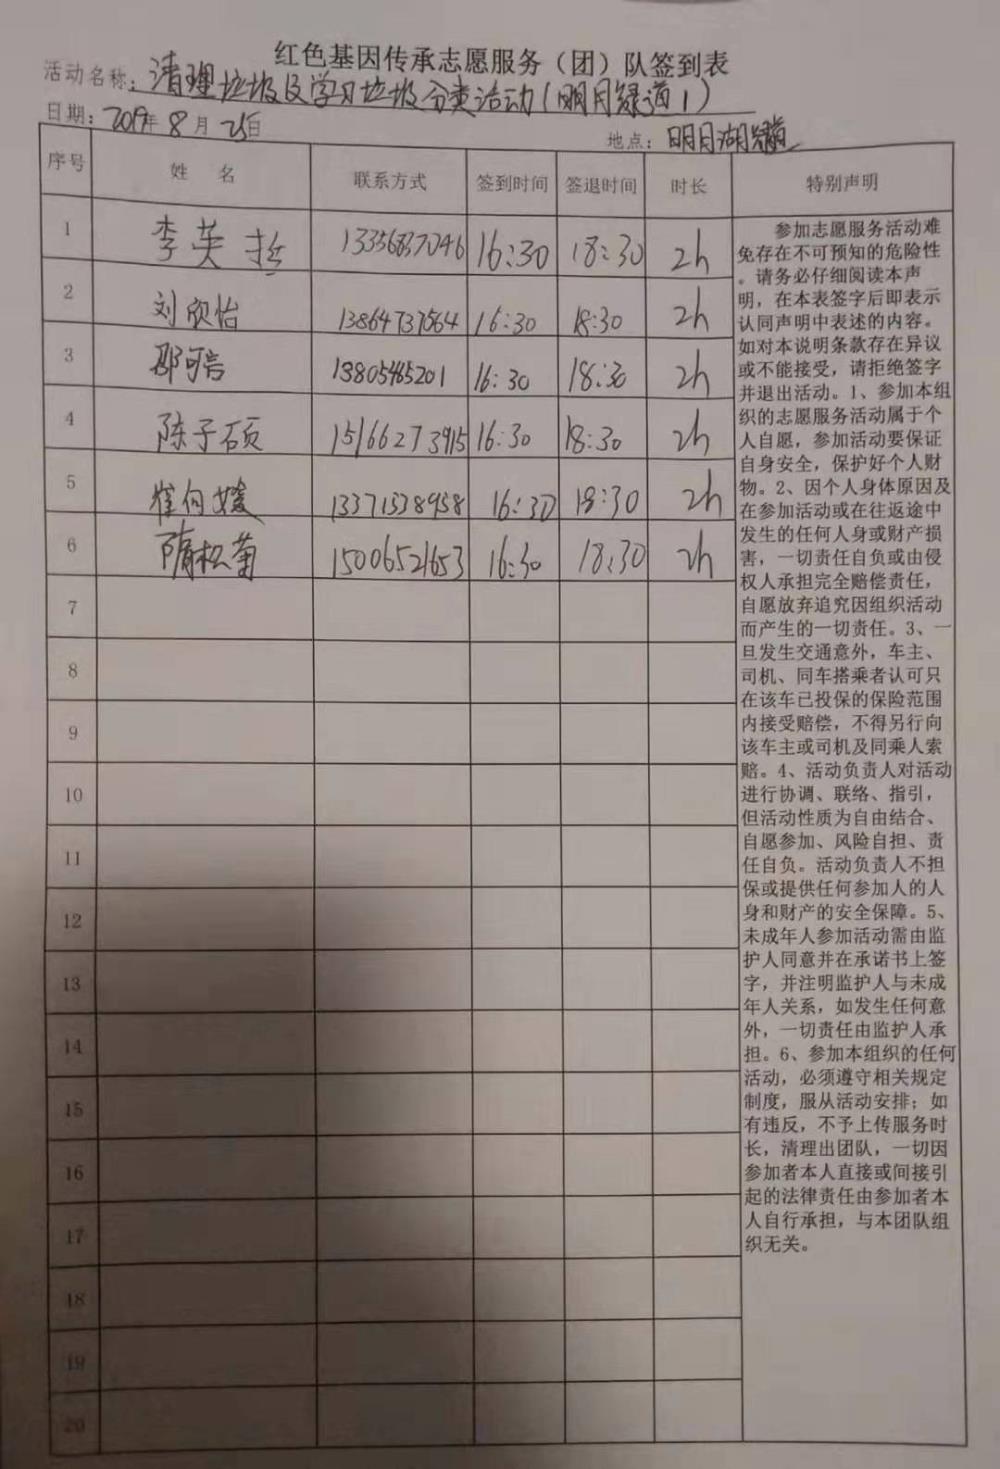 红色基因传承志愿服务（团）队签到表
活动名称：清理垃圾及学习垃圾分类活动（明月绿道1）
日期：2019年8月25日
地点：明月湖
序号 姓名 联系方式 签到时间 签退时间 时长 特别声明
1 李英哲 13356837046 16:30 18:30 2h
2 刘欣怡 13864737564 16:30 18:30 2h
3 邵可言 13805465201 16:30 18:30 2h
4 陈子硕 15166273915 16:30 18:30 2h
5 崔向媛 13371538958 16:30 18:30 2h
6 隋松菊 15006521653 16:30 18:30 2h
7
8
9
10
11
12
13
14
15
16
17
18
19
20
参加志愿服务活动难
免存在不可预知的危险性
。请务必仔细阅读本声
明，在本表签字后即表示
认同声明中表述的内容。
如对本说明条款存在异议
或不能接受，请拒绝签字
并退出活动。1、参加本组
织的志愿服务活动属于个
人自愿，参加活动要保证
自身安全，保护好个人财
物。2、因个人身体原因及
在参加活动或在往返途中
发生的任何人身或财产损
害，一切责任自负或由侵
权人承担完全赔偿责任，
自愿放弃追究因组织活动
而产生的一切责任。3、一
旦发生交通意外，车主、
司机、同车搭乘者认可只
在该车已投保的保险范围
内接受赔偿，不得另行向
该车主或司机及同乘人索
赔。4、活动负责人对活动
进行协调、联络、指引，
但活动性质为自由结合、
自愿参加、风险自担、责
任自负。活动负责人不担
保或提供任何参加人的人
身和财产的安全保障。5、
未成年人参加活动需由监
护人同意并在承诺书上签
字，并注明监护人与未成
年人关系，如发生任何意
外，一切责任由监护人承
担。6、参加本组织的任何
活动，必须遵守相关规定
制度，服从活动安排；如
有违反，不予上传服务时
长，清理出团队，一切因
参加者本人直接或间接引
起的法律责任由参加者本
人自行承担，与本团队组
织无关。